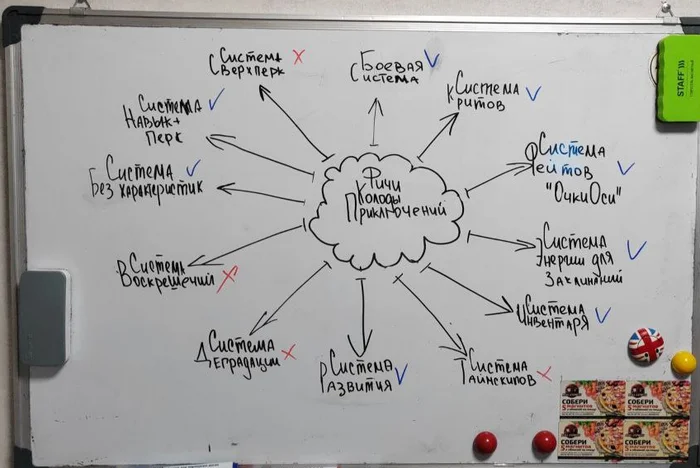 Фичи
Колоды
Приключений
Боевая
Система
Система
Критов
Система
Фейтов
"Очки Оси"
Система
Энергии для
Заклинаний
Система
Инвентаря
Система
Таймскипов
Система
Развития
Система
Деградации
Система
Воскрешений
Система
Без характеристик
Система
Навык+
Перк
Система
Сверхперк
STAFF
СОБЕРИ
СОБЕРИ
СОБЕРИ
СОБЕРИ